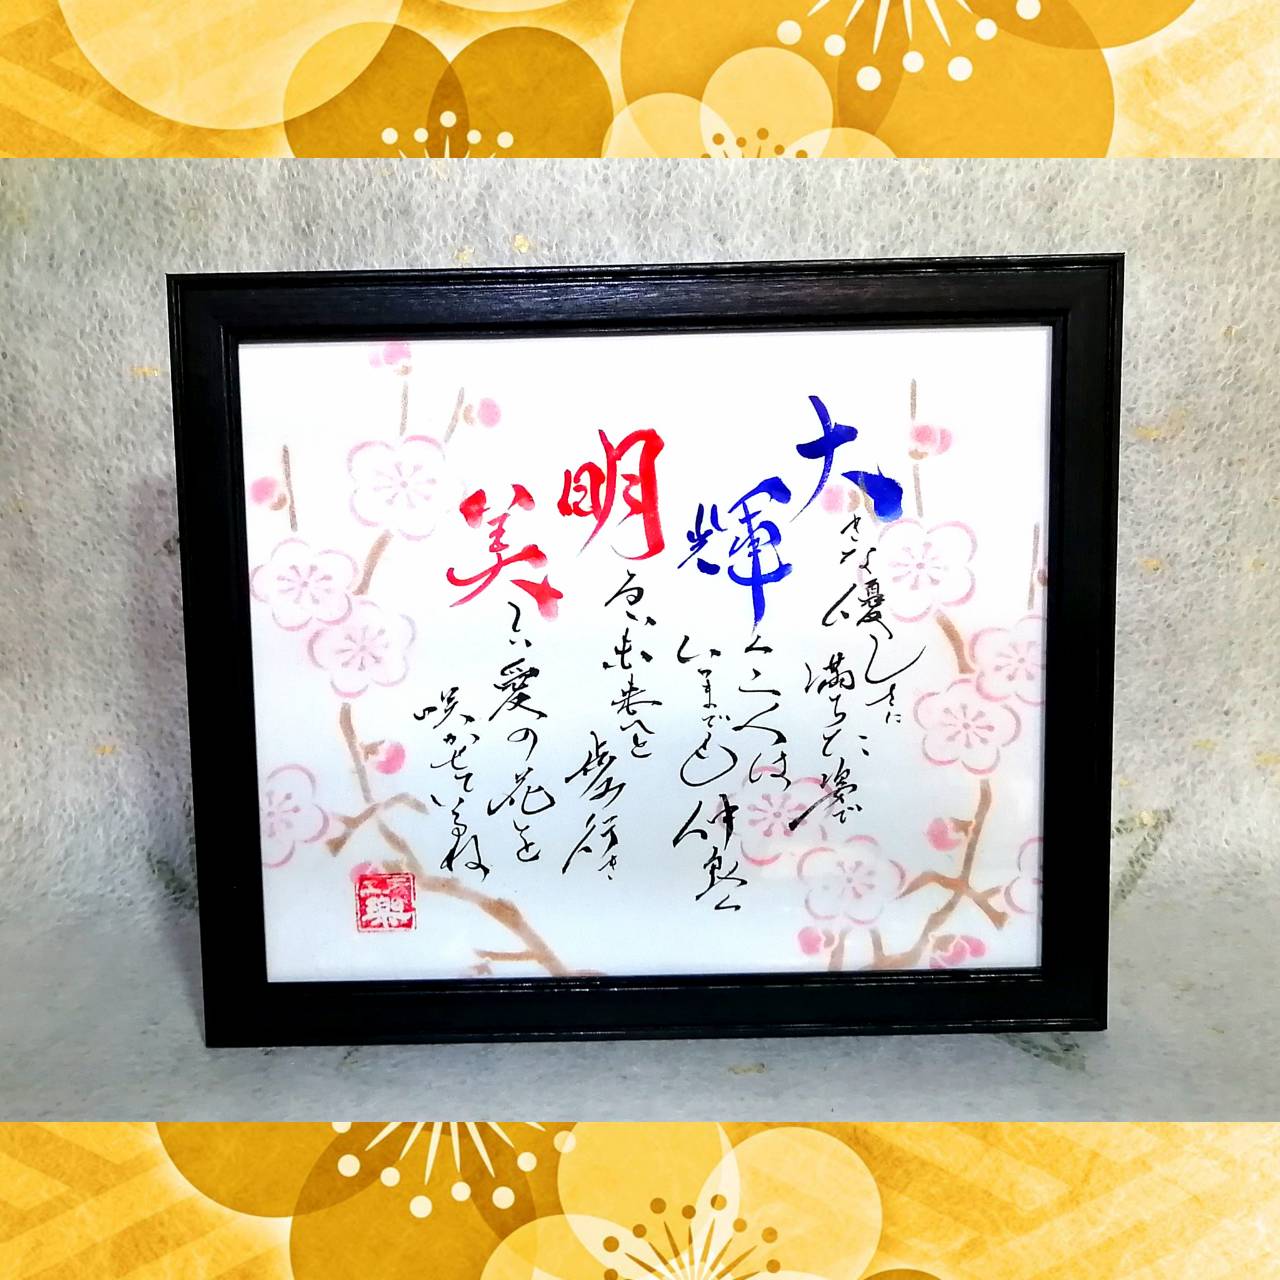 大きな優しさに
心満ちた姿で
輝く二人は
いつまでも仲良く
明るい未来へと
歩み行き
美しい愛の花を
咲かせて